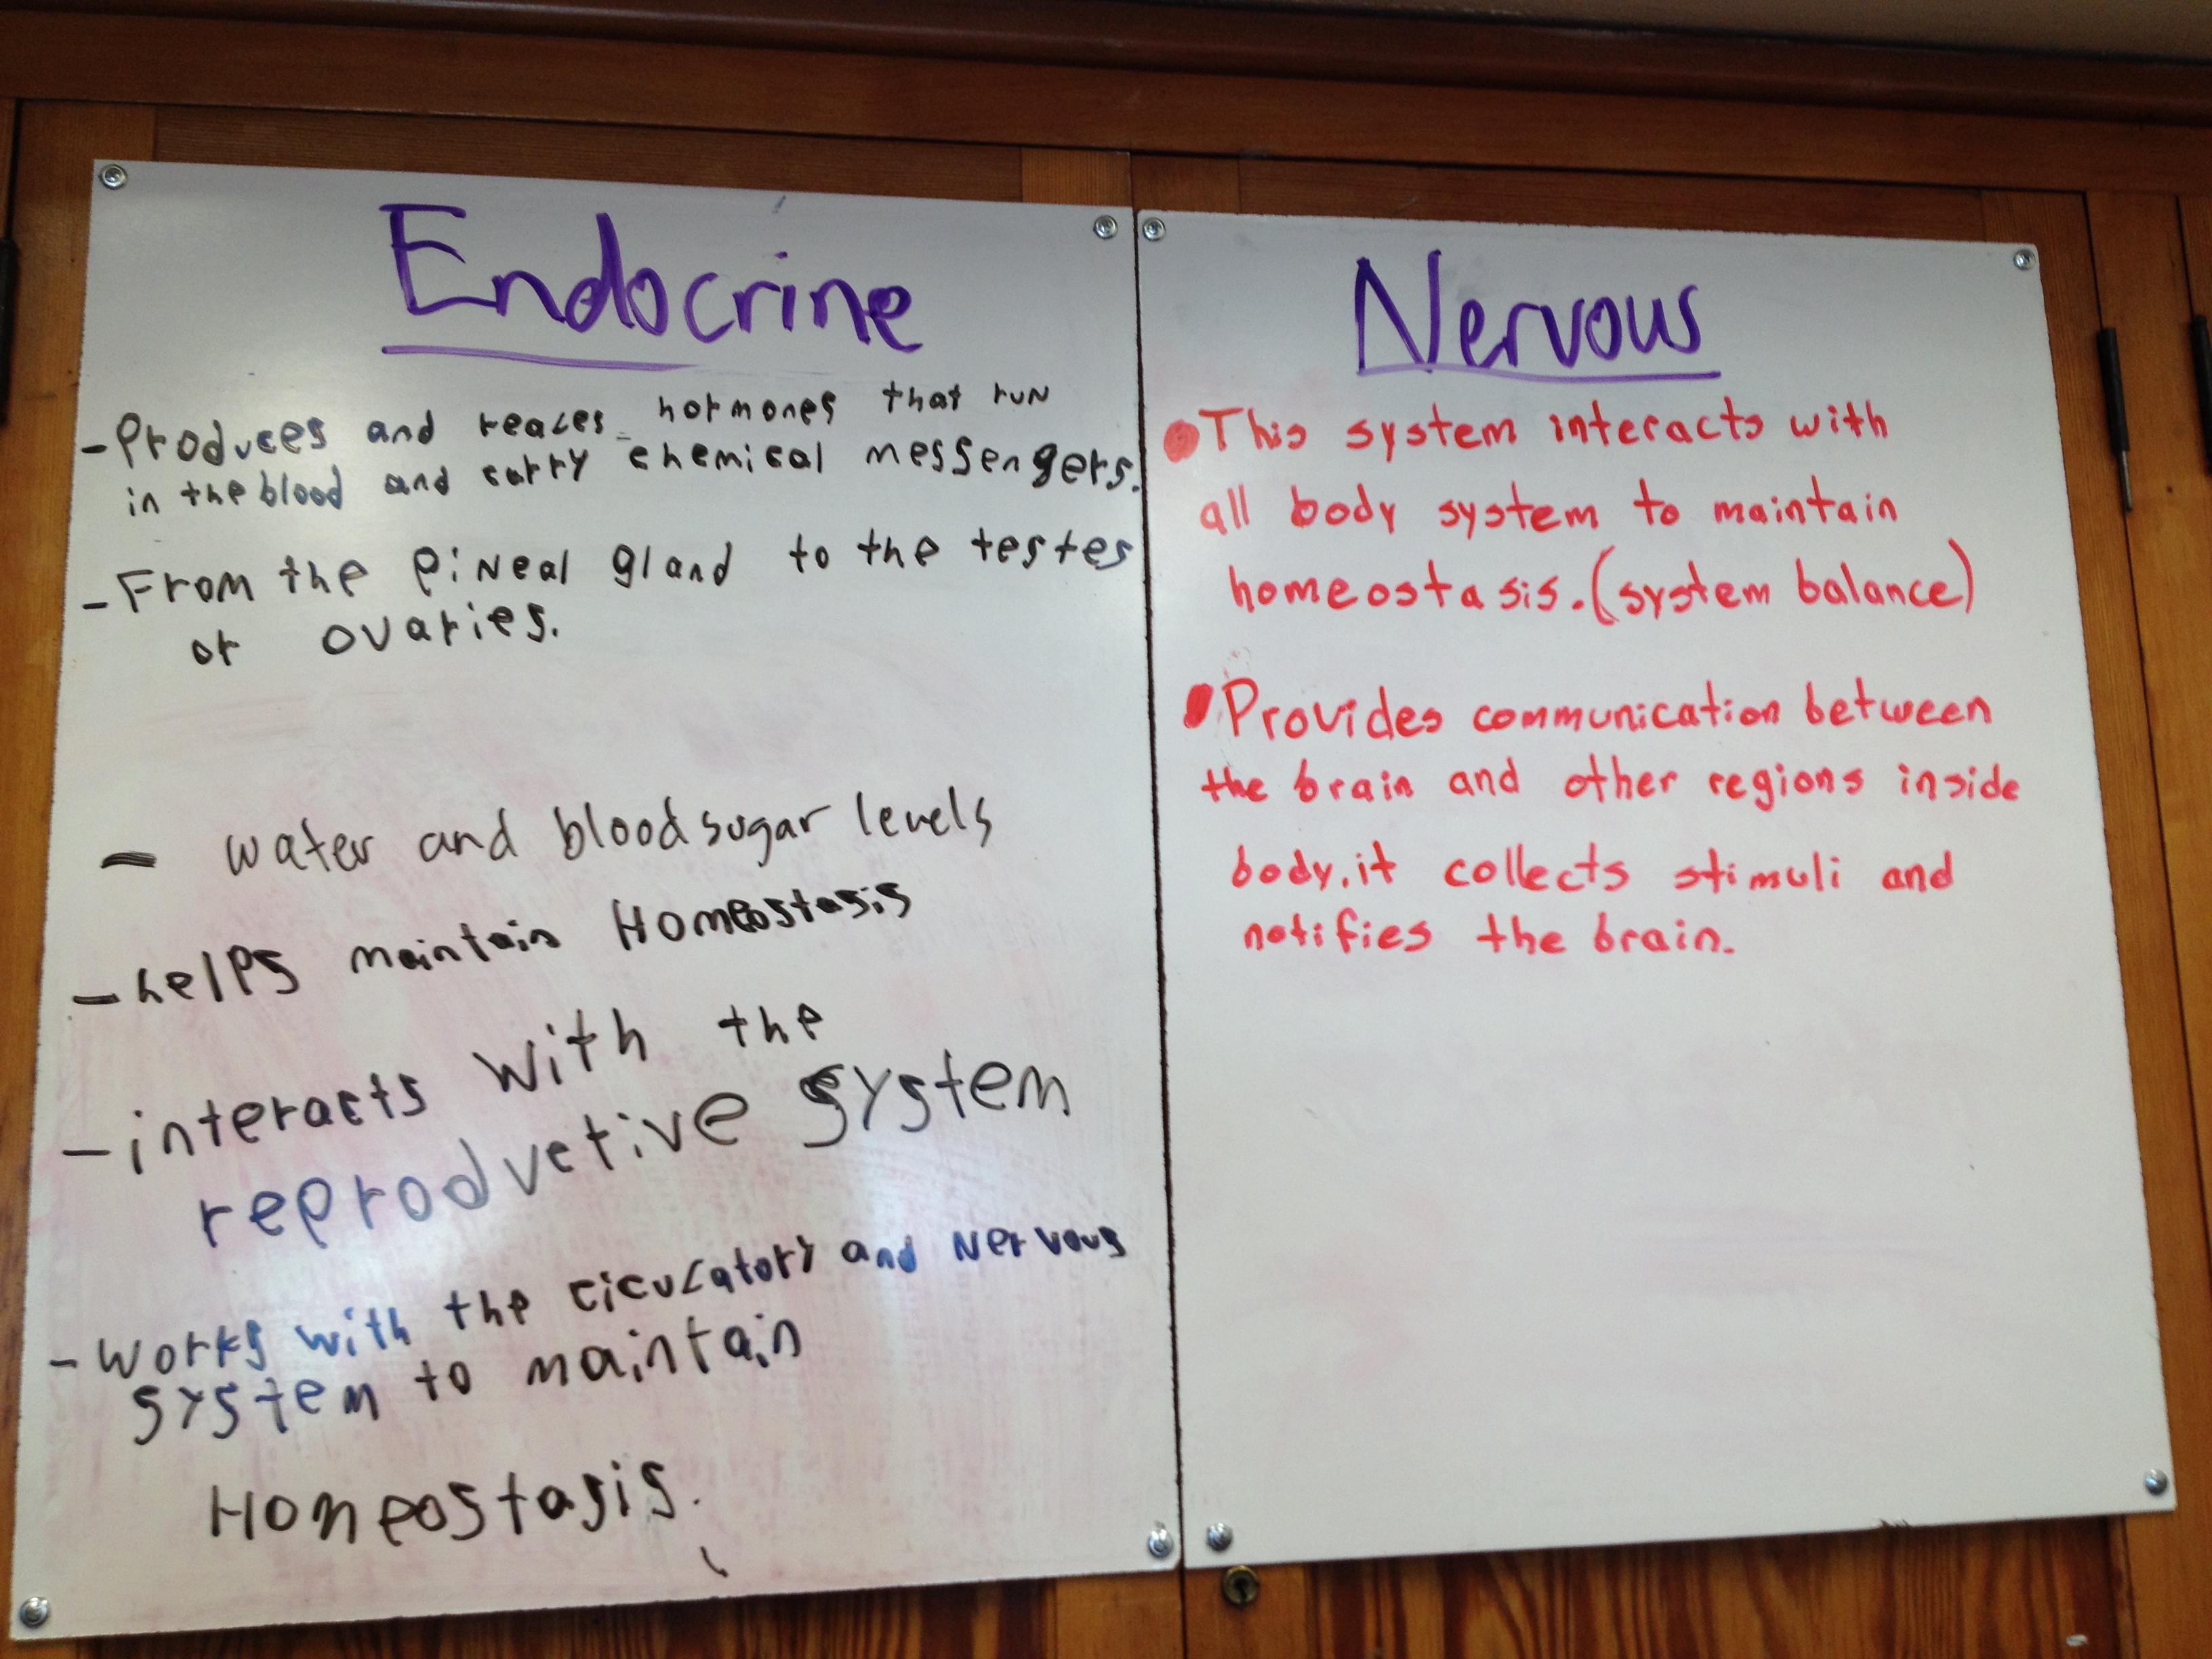 Endocrine
- Produces and reales hormones that run
in the blood and carry chemical messengers.
- From the Pineal gland to the testes
or ovaries.
- water and blood sugar levels
- helps maintain Homeostasis
- interacts with the
reproductive system
- Works with the ciculatory and Nervous
system to maintain
Homeostasis.
Nervous
• This system interacts with
all body system to maintain
homeostasis. (system balance)
• Provides communication between
the brain and other regions inside
body. it collects stimuli and
notifies the brain.